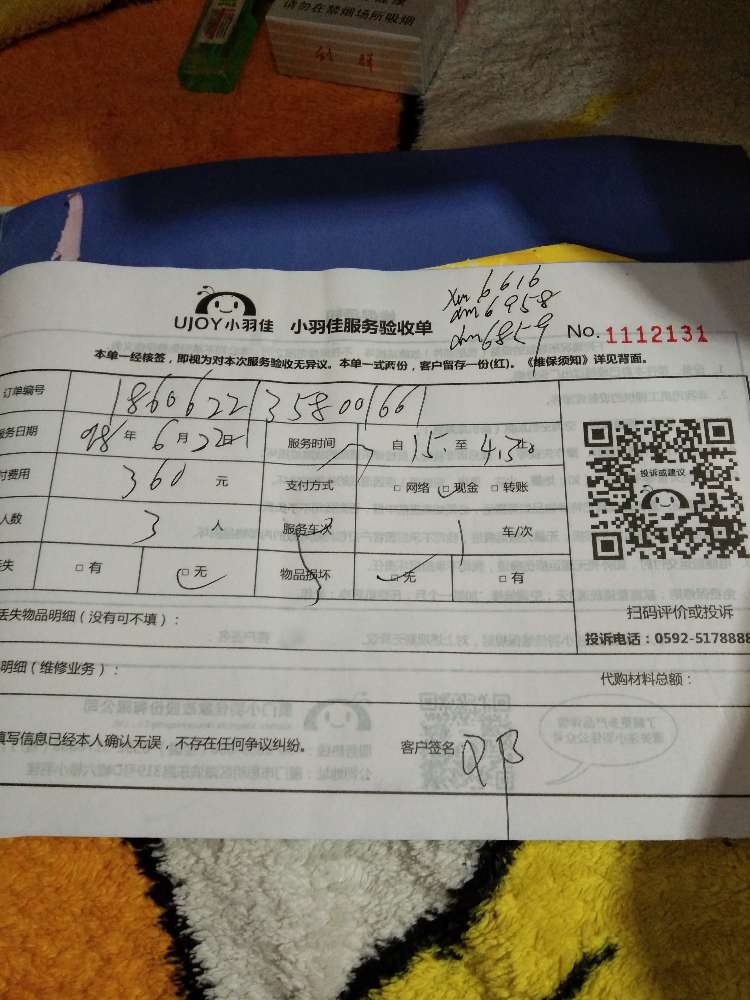 请勿在禁烟场所吸烟
xm6616
dm6958
dm6859
UJOY小羽佳 小羽佳服务验收单 No. 1112131
本单一经核签，即视为对本次服务验收无异议。本单一式两份，客户留存一份(红)。《维保须知》详见背面。
订单编号 18606221358001661
服务日期 年 6 月 22 日 服务时间 自 15 至
付费用 360 元 支付方式 □ 网络 □ 现金 □ 转账
人数 3 人 服务车次 1 车/次
丢失 □ 有 □ 无 物品损坏 □ 无 □ 有
投诉或建议
扫码评价或投诉
投诉电话：0592-5178888
丢失物品明细（没有可不填）：
明细（维修业务）： 代购材料总额：
填写信息已经本人确认无误，不存在任何争议纠纷。 客户签名